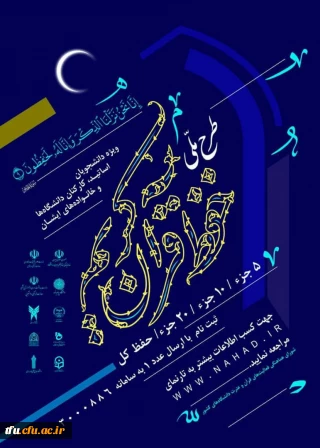 إِنَّا نَحْنُ نَزَّلْنَا الذِّكْرَ وَإِنَّا لَهُ لَحَافِظُونَ
طرح ملّی
حفظ قرآن کریم
ویژه دانشجویان
اساتید، کارکنان دانشگاه‌ها
و خانواده‌های ایشان
۵ جزء / ۱۰ جزء / ۲۰ جزء / حفظ کل
ثبت نام با ارسال عدد ۱ به سامانه
جهت کسب اطلاعات بیشتر به تارنمای
WWW.NAHAD.IR
مراجعه نمایید.
tfu.cfu.ac.ir